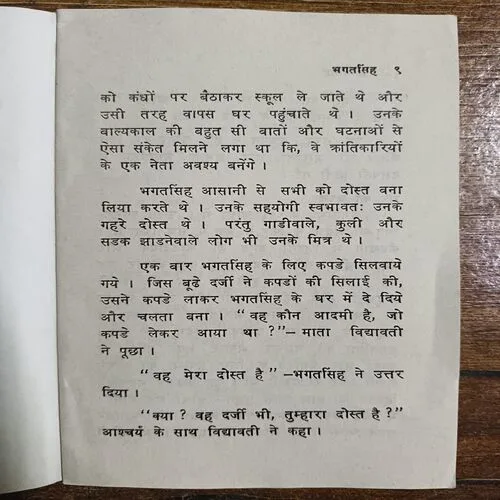 भगतसिंह ९
को कंधों पर बैठाकर स्कूल ले जाते थे और
उसी तरह वापस घर पहुंचाते थे । उनके
बाल्यकाल की बहुत सी बातों और घटनाओं से
ऐसा संकेत मिलने लगा था कि, वे क्रांतिकारियों
के एक नेता अवश्य बनेंगे ।
भगतसिंह आसानी से सभी को दोस्त बना
लिया करते थे । उनके सहयोगी स्वभावतः उनके
गहरे दोस्त थे । परंतु गाडीवाले, कुली और
सडक झाडनेवाले लोग भी उनके मित्र थे ।
एक बार भगतसिंह के लिए कपडे सिलवाये
गये । जिस बूढे दर्जी ने कपडों की सिलाई की,
उसने कपडे लाकर भगतसिंह के घर में दे दिये
और चलता बना । “वह कौन आदमी है, जो
कपडे लेकर आया था ?”– माता विद्यावती
ने पूछा ।
“वह मेरा दोस्त है” –भगतसिंह ने उत्तर
दिया ।
“क्या ? वह दर्जी भी, तुम्हारा दोस्त है ?”
आश्चर्य के साथ विद्यावती ने कहा ।